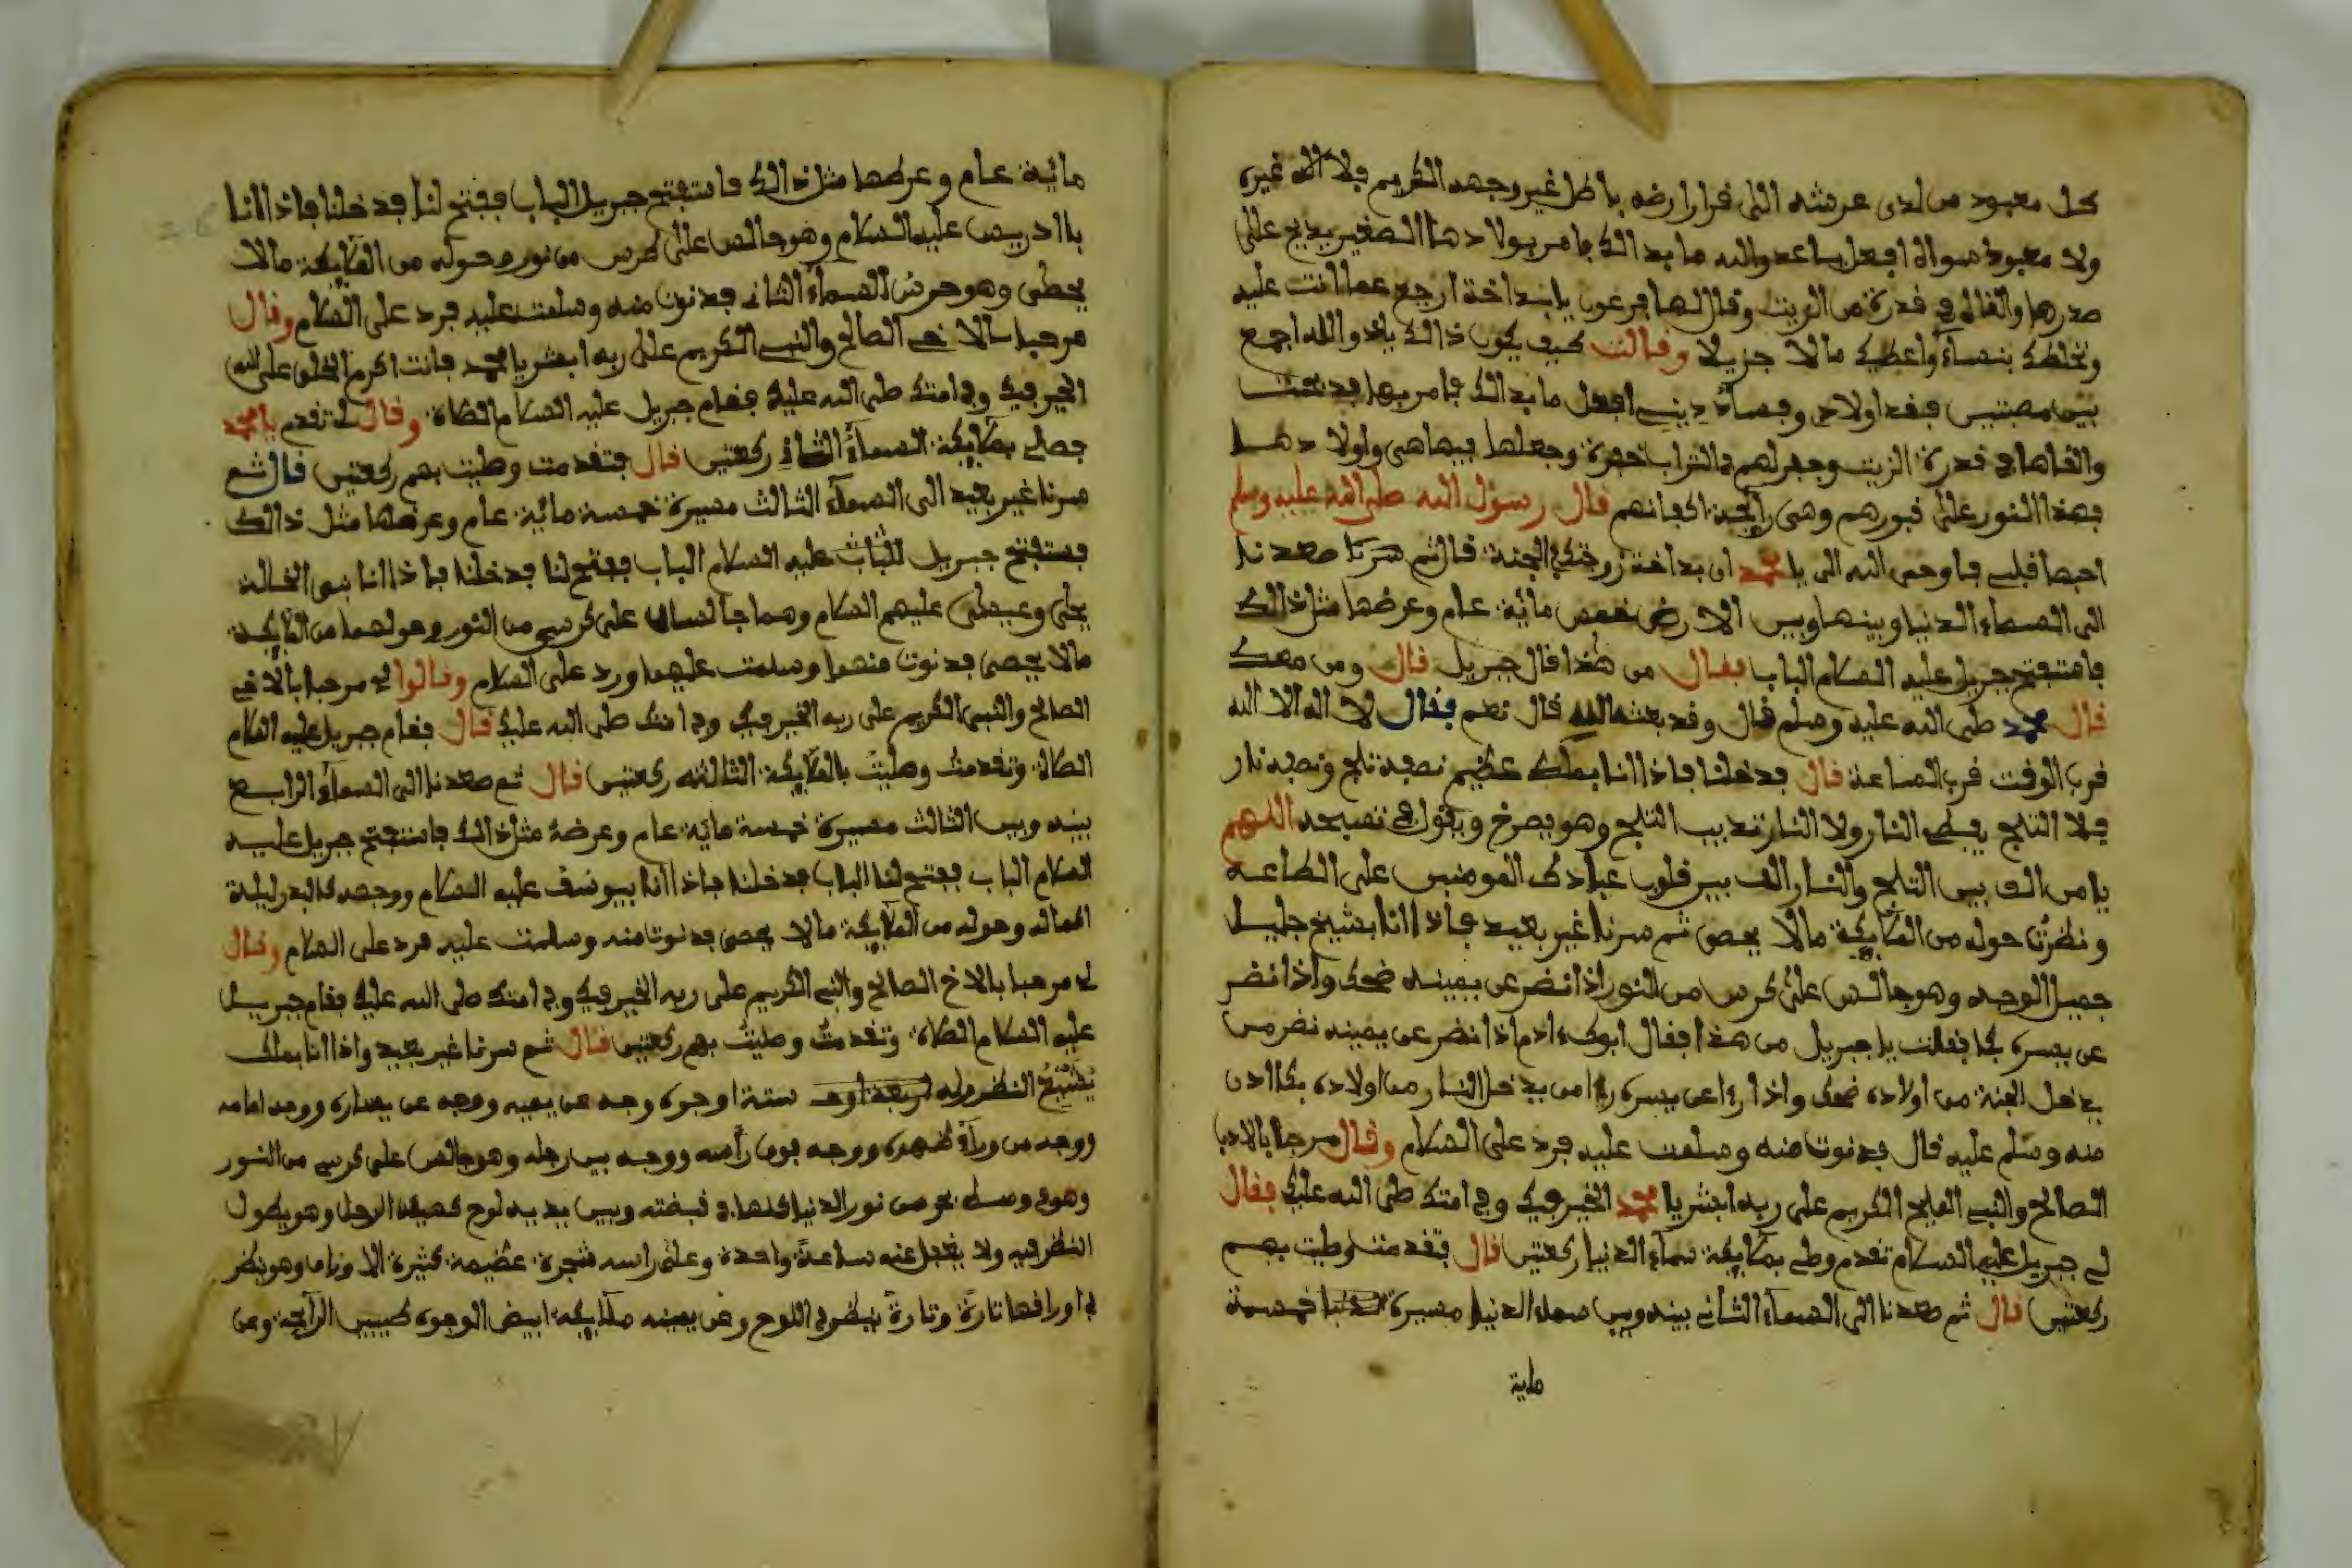 كل معبود من لدى عرشه الى قرار ارضه باطل غير وجهه الكريم فلا اله غيره
ولا معبود سواه افعل ساعدو الله ما بدالك فامر بولادها الصغير يذبح على
صدرها والقاه في قدرة من الزيت وقال لها فرعون يا بداخة ارجع عما انت عليه
ونخلطك بنساء واعطيك مالا جزيلا وقالت كيف يكون ذالك يا عدو الله اجمع
بين مصبتين فقد اولادي وفساد ديني افعل ما بدالك فامر بها فدبحت
والقاها في قدرة الزيت وحفر لهم في التراب حفرة وجعلها فيها هي واولادها
فهذا النور على قبورهم وهي رائحة اكفانهم قال رسول الله صلى الله عليه وسلم
احبها قلبي فاوحى الله الي يا محمد ان بداخة زوجتك في الجنة قال ثم سرنا صعدنا
الى السماء الدنيا وبينها وبين الارض خمس مائة عام وعرضها مثل ذالك
فاستفتح جبريل عليه السلام الباب فقال من هذا قال جبريل قال ومن معك
قال محمد صلى الله عليه وسلم قال وقد بعثه الله قال نعم فقال لا اله الا الله
قرب الوقت قرب الساعة قال فدخلنا فاذا انا بملك عظيم نصفه ثلج ونصفه نار
فلا الثلج يطفي النار ولا النار تذيب الثلج وهو يصرخ ويقول في تصبيحه اللهم
يا من الف بين الثلج والنار الف بين قلوب عبادك المومنين على الطاعة
ونظرت حوله من الملايكة مالا يحصى ثم سرنا غير بعيد فاذا انا بشيخ جليل
جميل الوجه وهو جالس على كرسي من النور اذا نضر عن يمينه ضحك واذا نضر
عن يسره بكا فقلت يا جبريل من هذا فقال ابوك ءادم اذا نضر عن يمينه نضر من
يدخل الجنة من اولاده ضحك واذا راءا عن يسره راءا من يدخل النار من اولاده بكا ادن
منه وسلم عليه قال فدنوت منه وسلمت عليه فرد على السلام وقال مرحبا بالابن
الصالح والنبي المليح الكريم على ربه ابشر يا محمد الخير فيك وفي امتك صلى الله عليك فقال
لي جبريل عليه السلام تقدم وصلي بملايكة سماء الدنيا ركعتين قال فتقدمت وصليت بهم
ركعتين قال ثم صعدنا الى السماء الثاني بينه وبين سماء الدنيا مسيرة خمسمة
ماية
مائية عام وعرضها مثل ذالك فاستفتح جبريل الباب ففتح لنا فدخلنا فاذا انا
باادريس عليه السلام وهو جالس على كرسي من نور وحوله من الملايكة مالا
يحصى وهو حرس السماء الثاني فدنوت منه وسلمت عليه فرد على السلام وقال
مرحبا بالاخي الصالح والنبي الكريم على ربه ابشر يا محمد فانت اكرم الخلق على الله
الخير فيك وفي امتك صلى الله عليك فقام جبريل عليه السلام الصلاة وقال لي تقدم يا محمد
فصلي بملايكة السماء الثاني ركعتين قال فتقدمت وصليت بهم ركعتين قال ثم
سرنا غير بعيد الى السماء الثالث مسيرة خمسة مائية عام وعرضها مثل ذالك
فستفتح جبريل للباب عليه السلام الباب ففتح لنا فدخلنا فاذا انا بنوي الخالة
يحي وعيسى عليهم السلام وهما جالسان على كرسي من النور وحولهما من الملايكة
مالا يحصى فدنوت منهما وسلمت عليهما ورد على السلام وقالوا لي مرحبا بالاخي
الصالح والنبي الكريم على ربه الخير فيك وفي امتك صلى الله عليك قال فقام جبريل عليه السلام
الصلاة وتقدمت وصليت بالملايكة الثالثه ركعتين قال ثم صعدنا الى السماء الرابع
بينه وبين الثالث مسيرة خمسة مائة عام وعرضه مثل ذالك فاستفتح جبريل عليه
السلام الباب ففتح لنا الباب فدخلنا فاذا انا بيوسف عليه السلام ووجهه كالبدر ليلة
اكماله وحوله من الملايكة مالا يحصى فدنوت منه وسلمت عليه فرد على السلام وقال
لي مرحبا بالاخ الصالح والنبي الكريم على ربه الخير فيك وفي امتك صلى الله عليك فقام جبريل
عليه السلام الصلاة وتقدمت وصليت بهم ركعتين قال ثم سرنا غير بعيد واذا انا بملك
النظر وله ستة اوجوه وجه عن يمينه ووجه عن يساره ووجه امامه
ووجه من وراء ظهره ووجه فوق راسه ووجه بين رجله وهو جالس على كرسي من النور
وهو في وسطه نحو من نور الدنيا كلها في قبضته وبين يديه لوح وهو يطول
النظر فيه ولا يغفل عنه ساعة واحدة وعلى راسه شجرة عظيمة كثيرة الاوراف وهو ينظر
في اورافها تارة وتارة ينظر في اللوح وعن يمينه ملايكة ابيض الوجوه طيبين الرائحة وعن